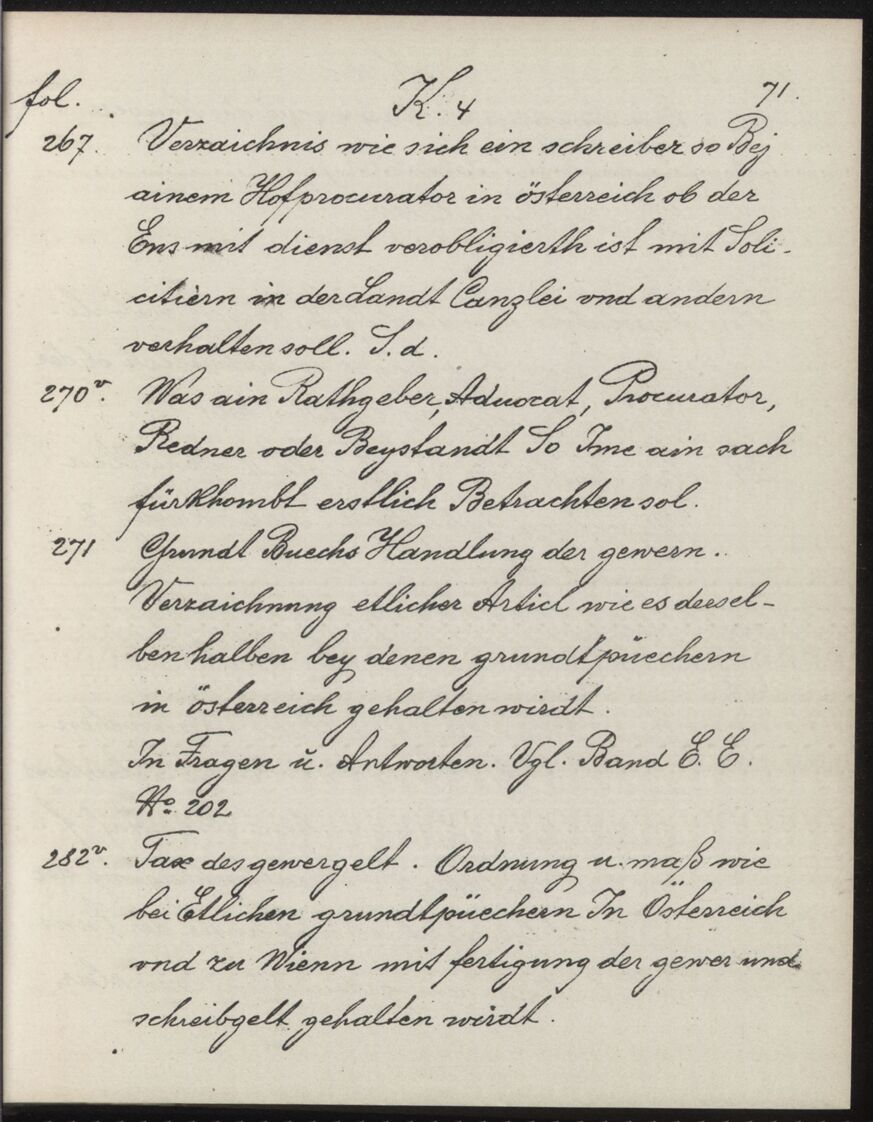 fol. K. 4 71.
267. Verzaichnis wie sich ein schreiber so Bej
ainem Hofprocurator in österreich ob der
Ens mit dienst verobligierth ist mit Soli-
citiern in der Landt Canzlei vnd andern
verhalten soll. S. d.
270v. Was ain Rathgeber, Aduocat, Procurator,
Redner oder Beystandt So Ime ain sach
fürkhombt erstlich Betrachten sol.
271 Grundt Buechs Handlung der gewern.
Verzaichnung etlicher Articl wie es dersel-
ben halben bey denen grundtpüechern
in österreich gehalten wirdt.
In Fragen u. Antworten. Vgl. Band E. E.
No. 202
282v. Tax des gewergelt. Ordnung u. maß wie
bei Etlichen grundtpüechern In Österreich
vnd zu Wienn mit fertigung der gewer und
schreibgelt gehalten wirdt.